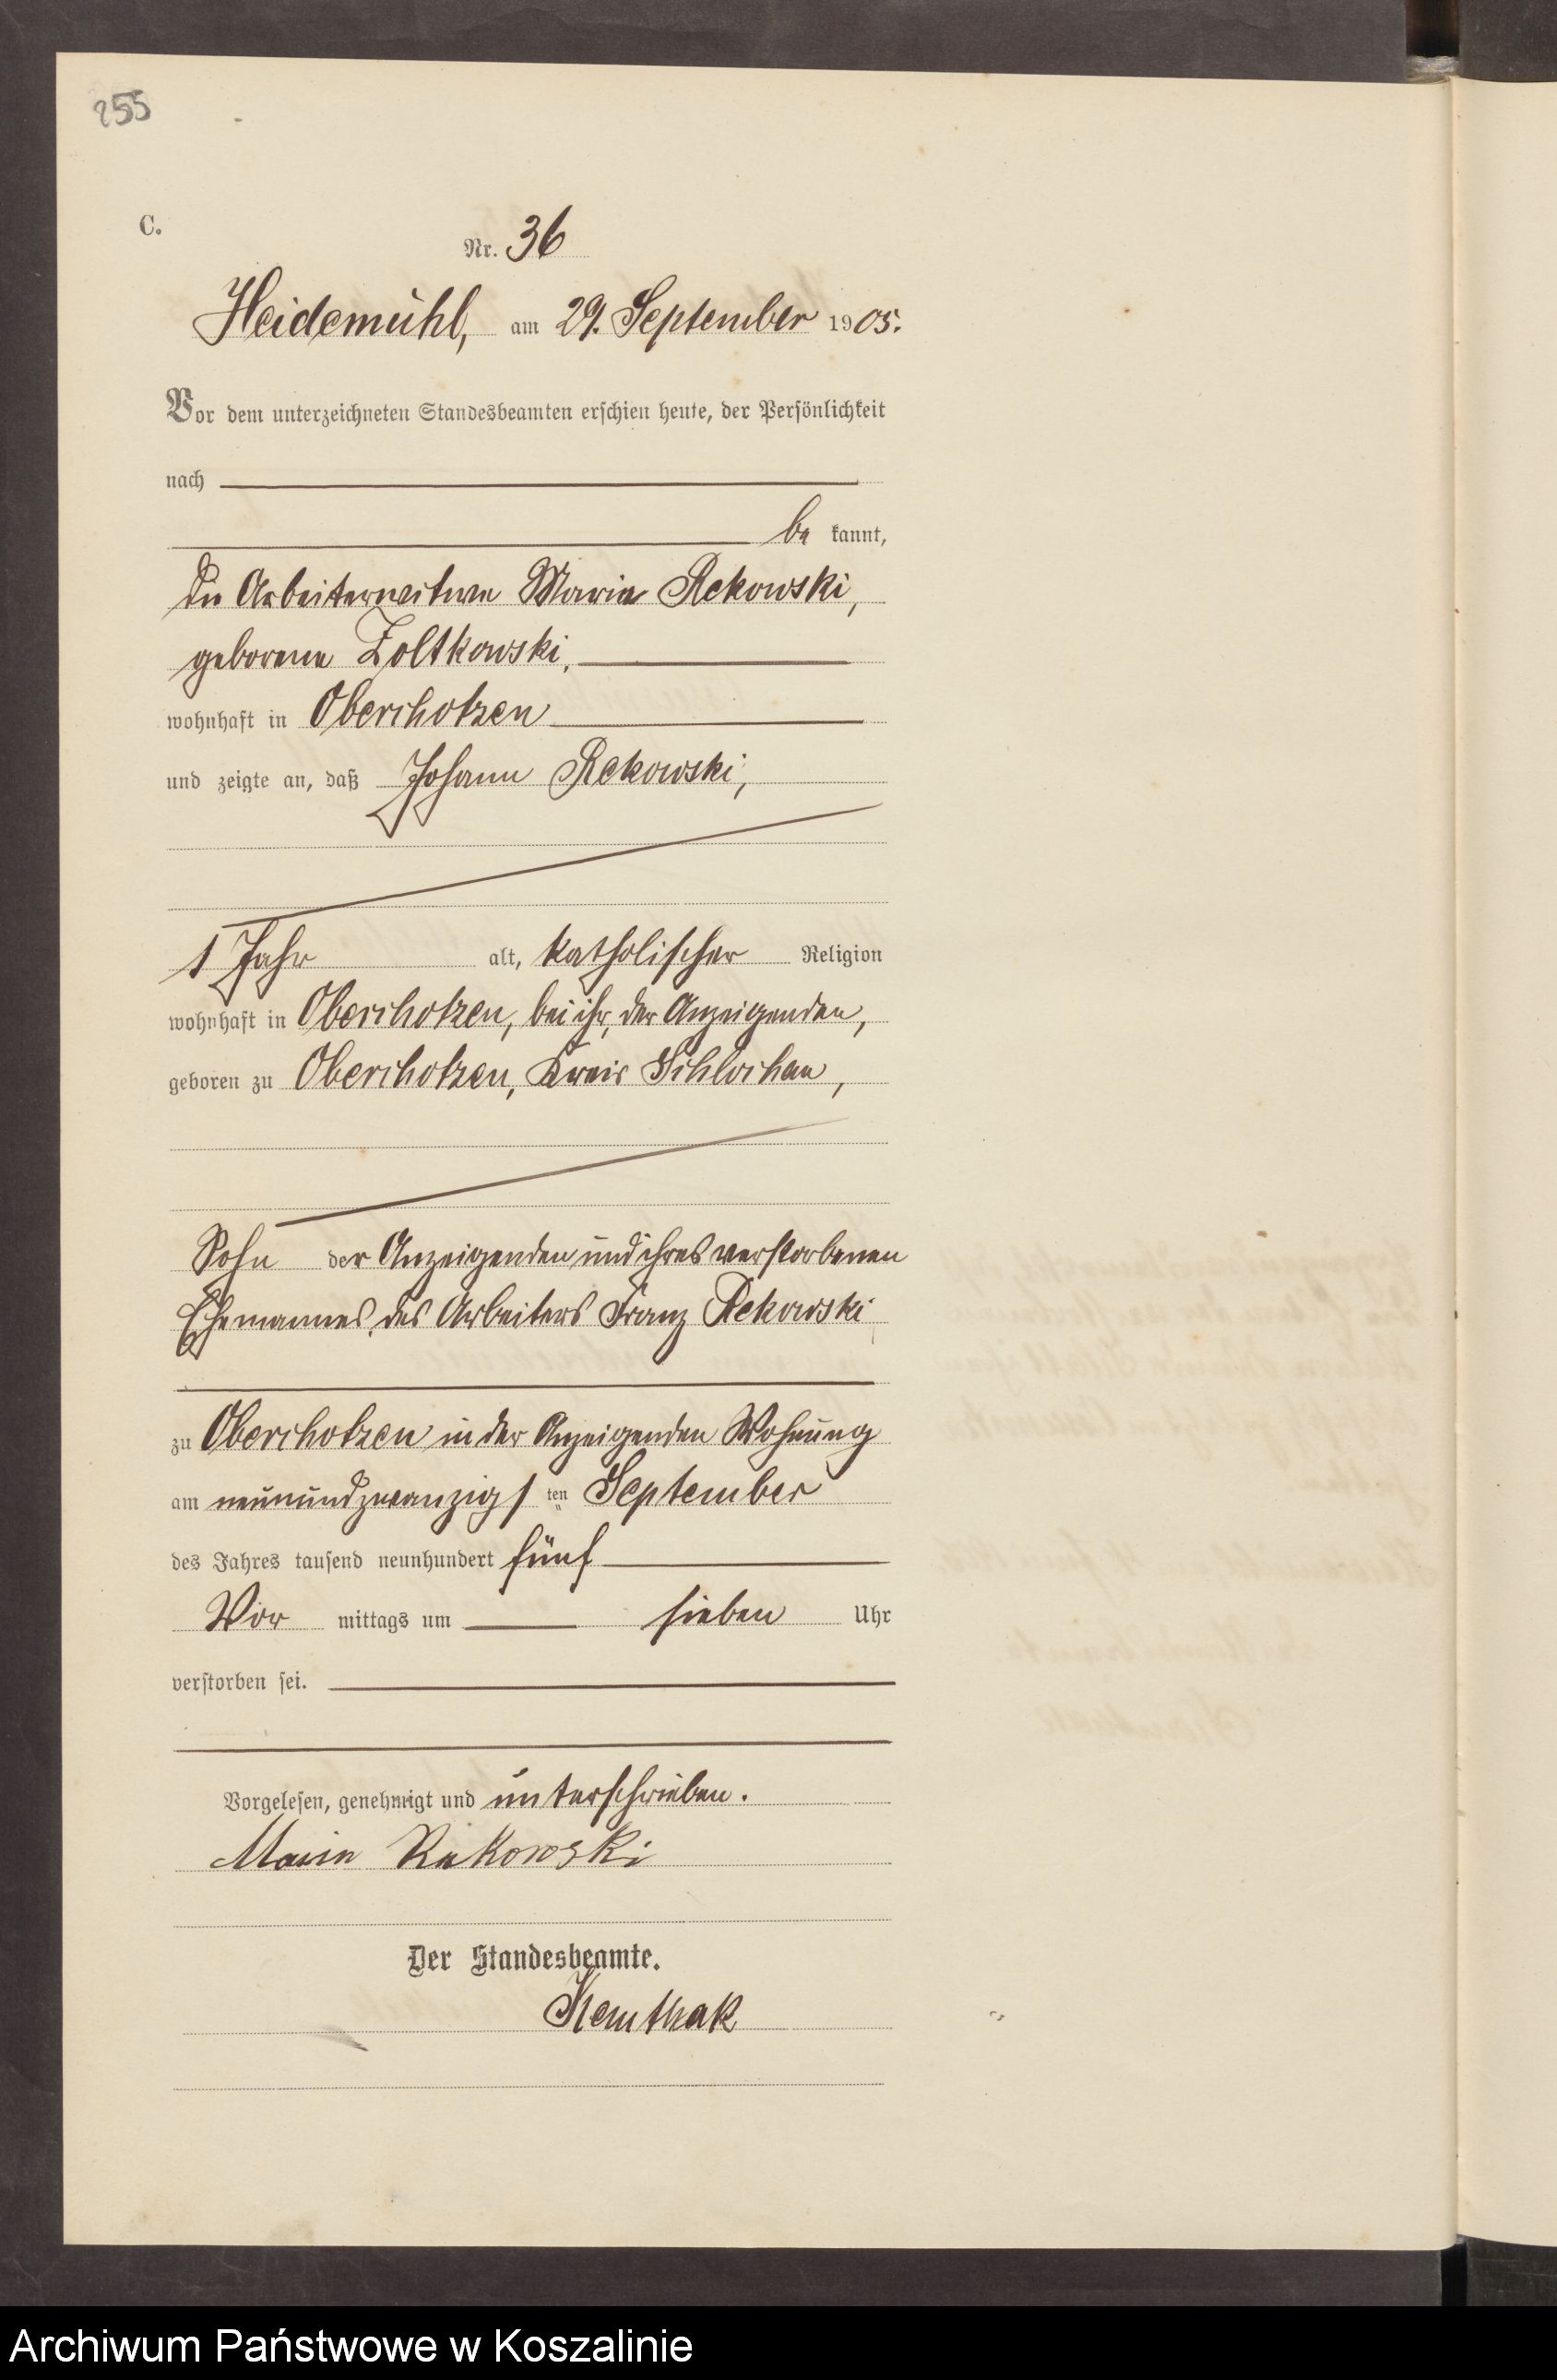 255
C.
Nr. 36
Heidemühl, am 29. September 1905.
Vor dem unterzeichneten Standesbeamten erschien heute, der Persönlichkeit
nach
be kannt,
die Arbeiterwitwe Maria Rekowski,
geborene Zoltkowski,
wohnhaft in Oberchotzen
und zeigte an, daß Johann Rekowski,
1 Jahr alt, katholischer Religion
wohnhaft in Oberchotzen, bei ihr, der Anzeigenden,
geboren zu Oberchotzen, Kreis Schlochau,
Sohn der Anzeigenden und ihres verstorbenen
Ehemannes, des Arbeiters Franz Rekowski
zu Oberchotzen in der Anzeigenden Wohnung
am neunundzwanzigsten September
des Jahres tausend neunhundert fünf
Vor mittags um sieben Uhr
verstorben sei.
Vorgelesen, genehmigt und unterschrieben.
Maria Rekowski
Der Standesbeamte.
Archiwum Państwowe w Koszalinie